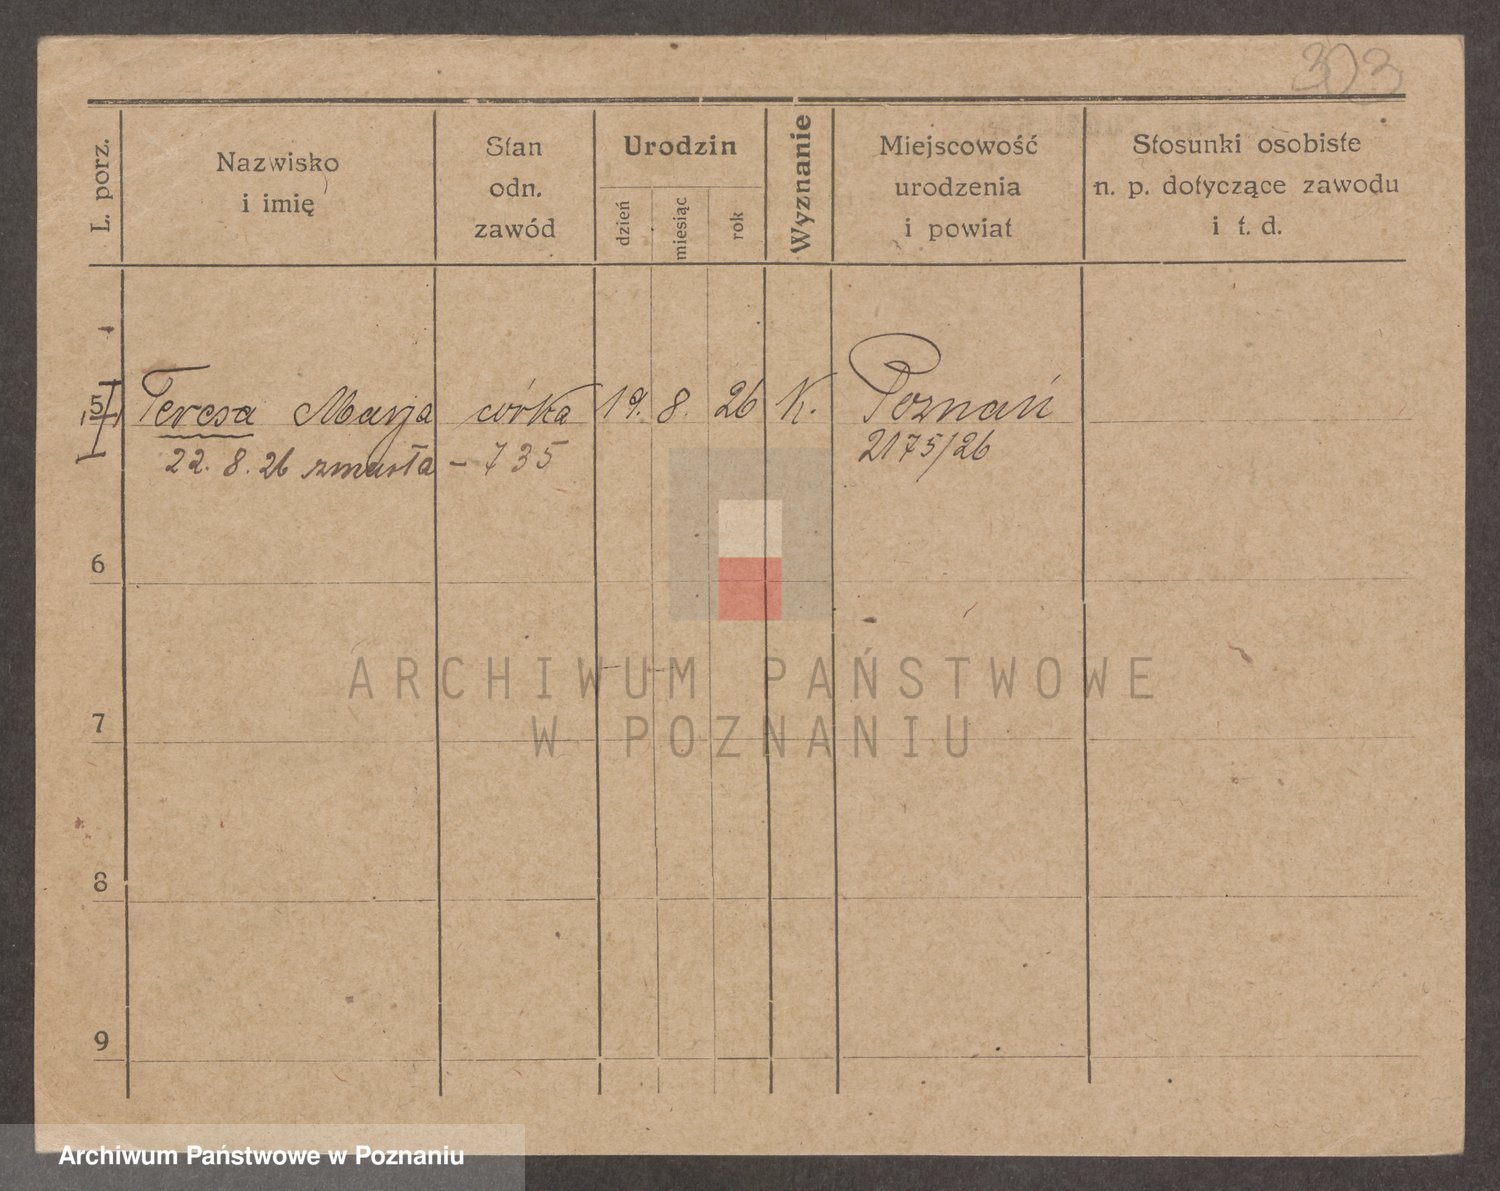 303
L. porz.
Nazwisko
i imię
Stan
odn.
zawód
Urodzin
dzień
miesiąc
rok
Wyznanie
Miejscowość
urodzenia
i powiat
Stosunki osobiste
n. p. dotyczące zawodu
i t. d.
5 Teresa Marja córka 19. 8. 26 K. Poznań
22. 8. 26 zmarła - 735 2175/26
6
7
8
9
ARCHIWUM PAŃSTWOWE
W POZNANIU
Archiwum Państwowe w Poznaniu